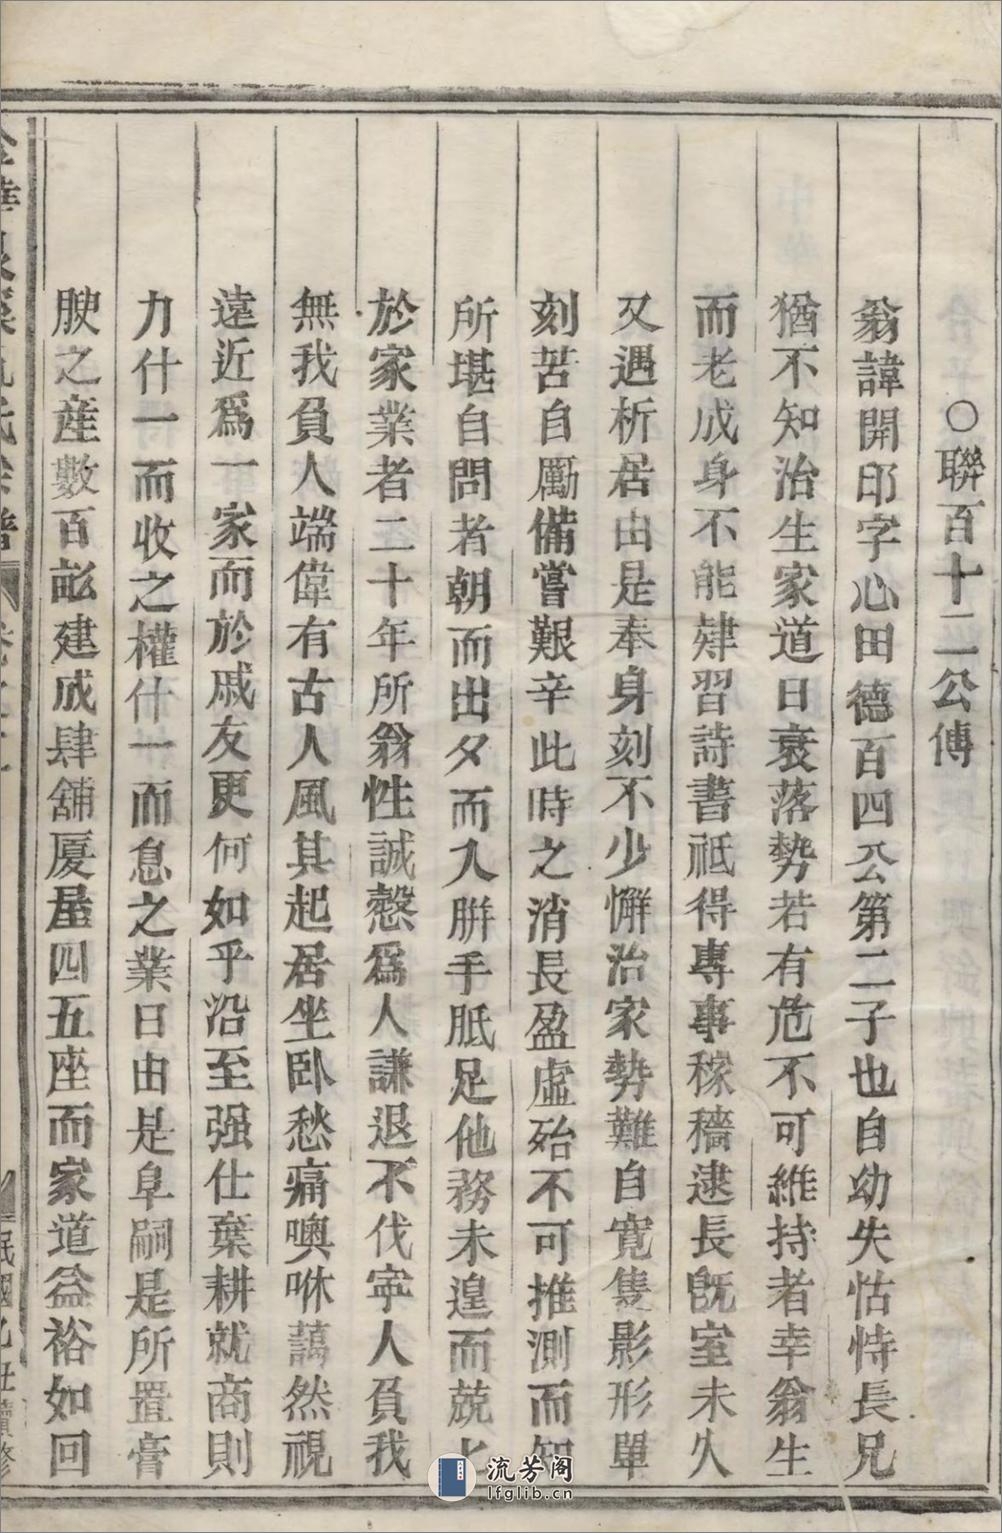 ○聯百十二公傳
翁諱開印字心田德百四公第二子也自幼失怙恃長兄
猶不知治生家道日衰落勢若有危不可維持者幸翁生
而老成身不能肄習詩書祇得專事稼穡逮長旣室未久
又遇析居由是奉身刻不少懈治家勢難自寬隻影形單
刻苦自勵備嘗艱辛此時之消長盈虛殆不可推測而知
所堪自問者朝而出夕而入胼手胝足他務未遑而兢
於家業者二十年所翁性誠慤爲人謙退不伐寧人負我
無我負人端偉有古人風其起居坐臥愁痛噢咻藹然視
遠近爲一家而於戚友更何如乎沿至强仕葉耕就商則
力什一而收之權什一而息之業日由是阜嗣是所置膏
腴之産數百畝建成肆舖厦屋四五座而家道益裕如回
民國乙丑續修
流芳阁
lfglib.cn